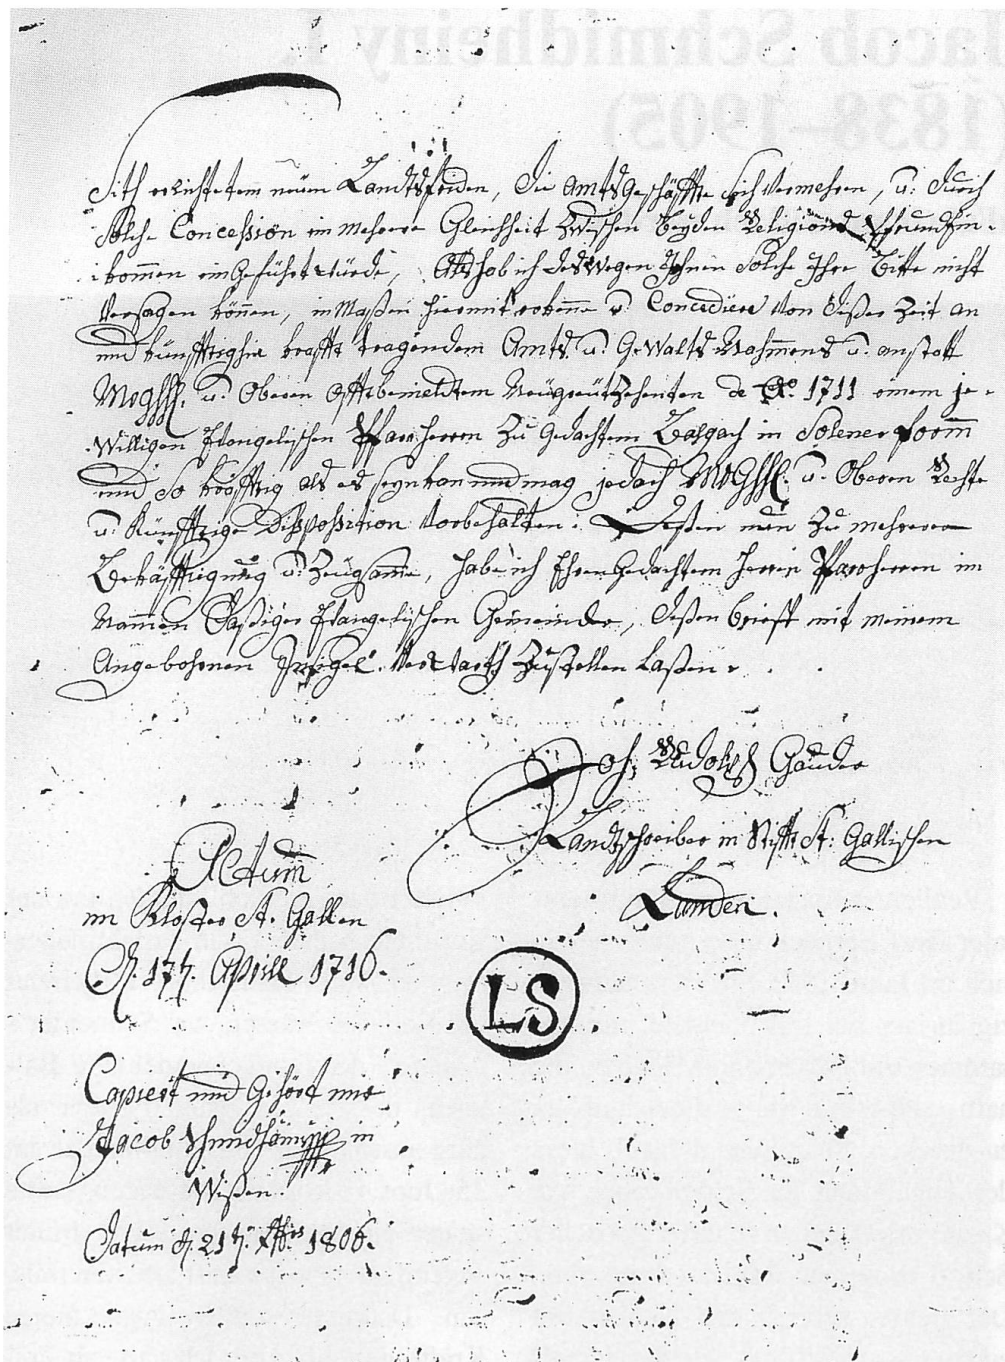 Sith erlichtetem neüen Landtsfriden, die Amts Geschäffte sich Vermehren, u: durch
Solche Concession ein mehrere Gleichheit Zwischen Beyden Religions Pfrund Ein-
kommen ein Geführt würde, Alß hab ich des Wegen Ihnen Solche Ihre Bitte nicht
Versagen können, in Maßen hiermit erkenne u: Concediere Von dißer Zeit an
und künfftighin krafft tragendem Amts u: GeWalts Nahmmens u: anstatt
MhGHH. u: Oberen offtbemeldtem Neügreüt Zehenten de Ao. 1711 einem je-
Willigen Evangelischen Pfarrherren Zu Gedachtem Balgach in Solener Formm
und So kräfftig als es seyn kan und mag jedoch MhGHH. u: Oberen Rechte
u: Künfftige Disposition Vorbehalten. Deßen nun Zu mehrerer
Bekräfftigung u: Zeügsamme, habe ich Ehren Gedachtem Herren Pfarrherren im
Nammen Daßiger Evangelischen Gemeinde, dißen brieff mit meinem
Angebohrnen Insigel Verwarth Zustellen Laßen.
Joh: Rudolph Gauder
Landtschreiber in Stifft St: Gallischen
Landen.
Actum
im Kloster St. Gallen
d. 17t. Aprill 1716.
LS
Capiert und Gehört mir
Jacob in
Wißen.
Datum d. 21t. 1806.
Jacob Schmidheiny I.
(1838–1905)